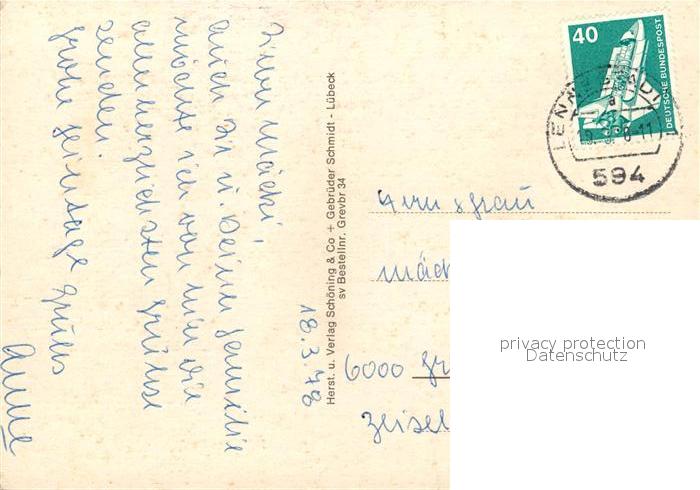 Lieber Mäcki,
auch Dir u. Deiner Familie
möchte ich von hier die
allerherzlichsten Grüße
senden.
Frohe Feiertage Grüßt
Anne
18.3.78
Herst. u. Verlag Schöning & Co + Gebrüder Schmidt - Lübeck
sv Bestellnr. Grevbr 34
40
DEUTSCHE BUNDESPOST
LENNESTADT
a
594
Herrn & Frau
Mäc
6000 Fr
Zeisel
privacy protection
Datenschutz